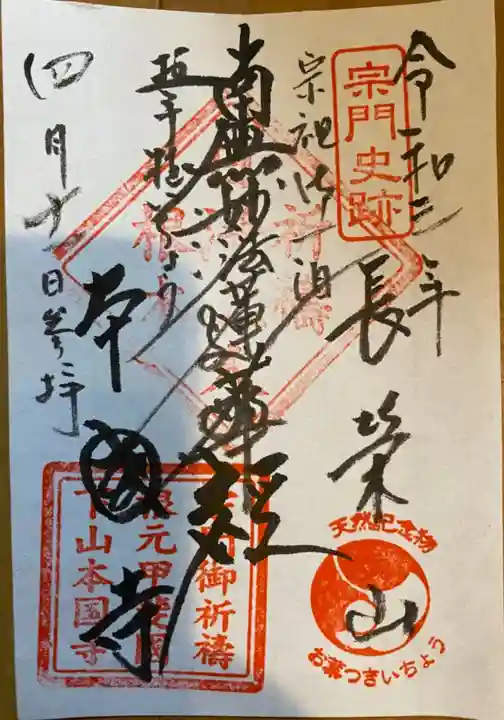 令和三年
宗門史跡
長栄
山
天然記念物
お葉つきいちょう
宗祖御一泊
祈祷
南無妙法蓮華経
根
四月十一日参拝
本国寺
宗門御祈祷
根元甲斐国
下山本国寺